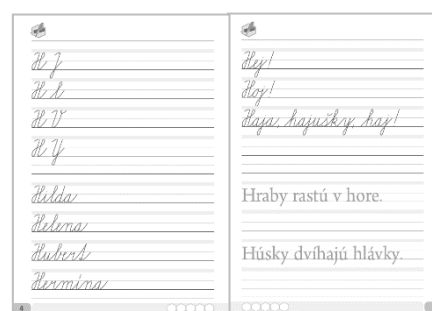 H J
H L
H V
H Y
Hilda
Helena
Hubert
Hermína
4
Hej!
Hoj!
Haja, hajušky, haj!
Hraby rastú v hore.
Húsky dvíhajú hlávky.